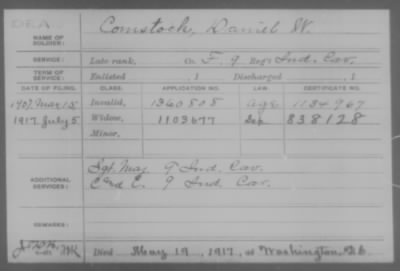 DEA
NAME OF SOLDIER: Comstock, Daniel W.
SERVICE: Late rank, Co. F, 9 Reg't Ind. Cav.
TERM OF SERVICE: Enlisted , 1 Discharged , 1
DATE OF FILING. CLASS. APPLICATION NO. LAW. CERTIFICATE NO.
1907, Mar 15 Invalid, 1360808 Age 1134967
1917 July 5 Widow, 1103677 838128
Minor,
ADDITIONAL SERVICES: Sgt. Maj. 9" Ind. Cav.
C and E. 9 Ind. Cav.
REMARKS:
Died May 19, 1917, at Washington, D.C.